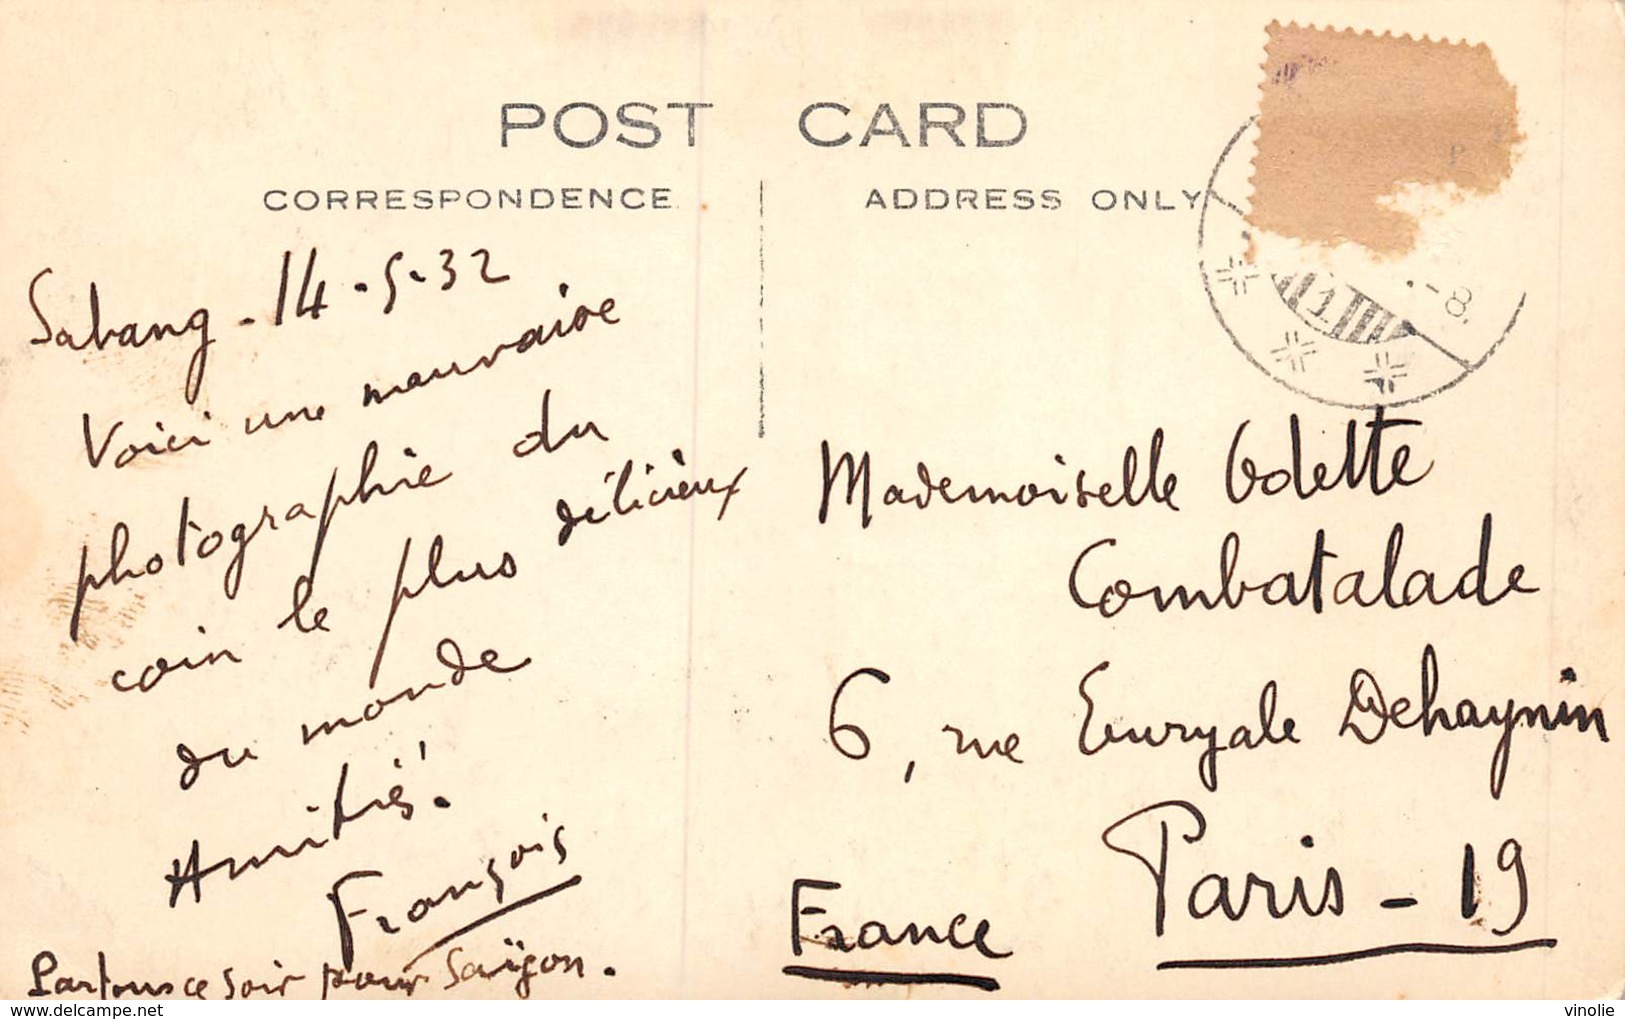 POST CARD
CORRESPONDENCE
ADDRESS ONLY
Sabang - 14-5-32
Voici une mauvaise
photographie du
coin le plus délicieux
du monde
Amitiés.
François
Partons ce soir pour Saïgon.
1
-8.
P
Mademoiselle Odette
Combatalade
6, rue Euryale Dehaynin
Paris - 19
France
delcampe.net
vinolie